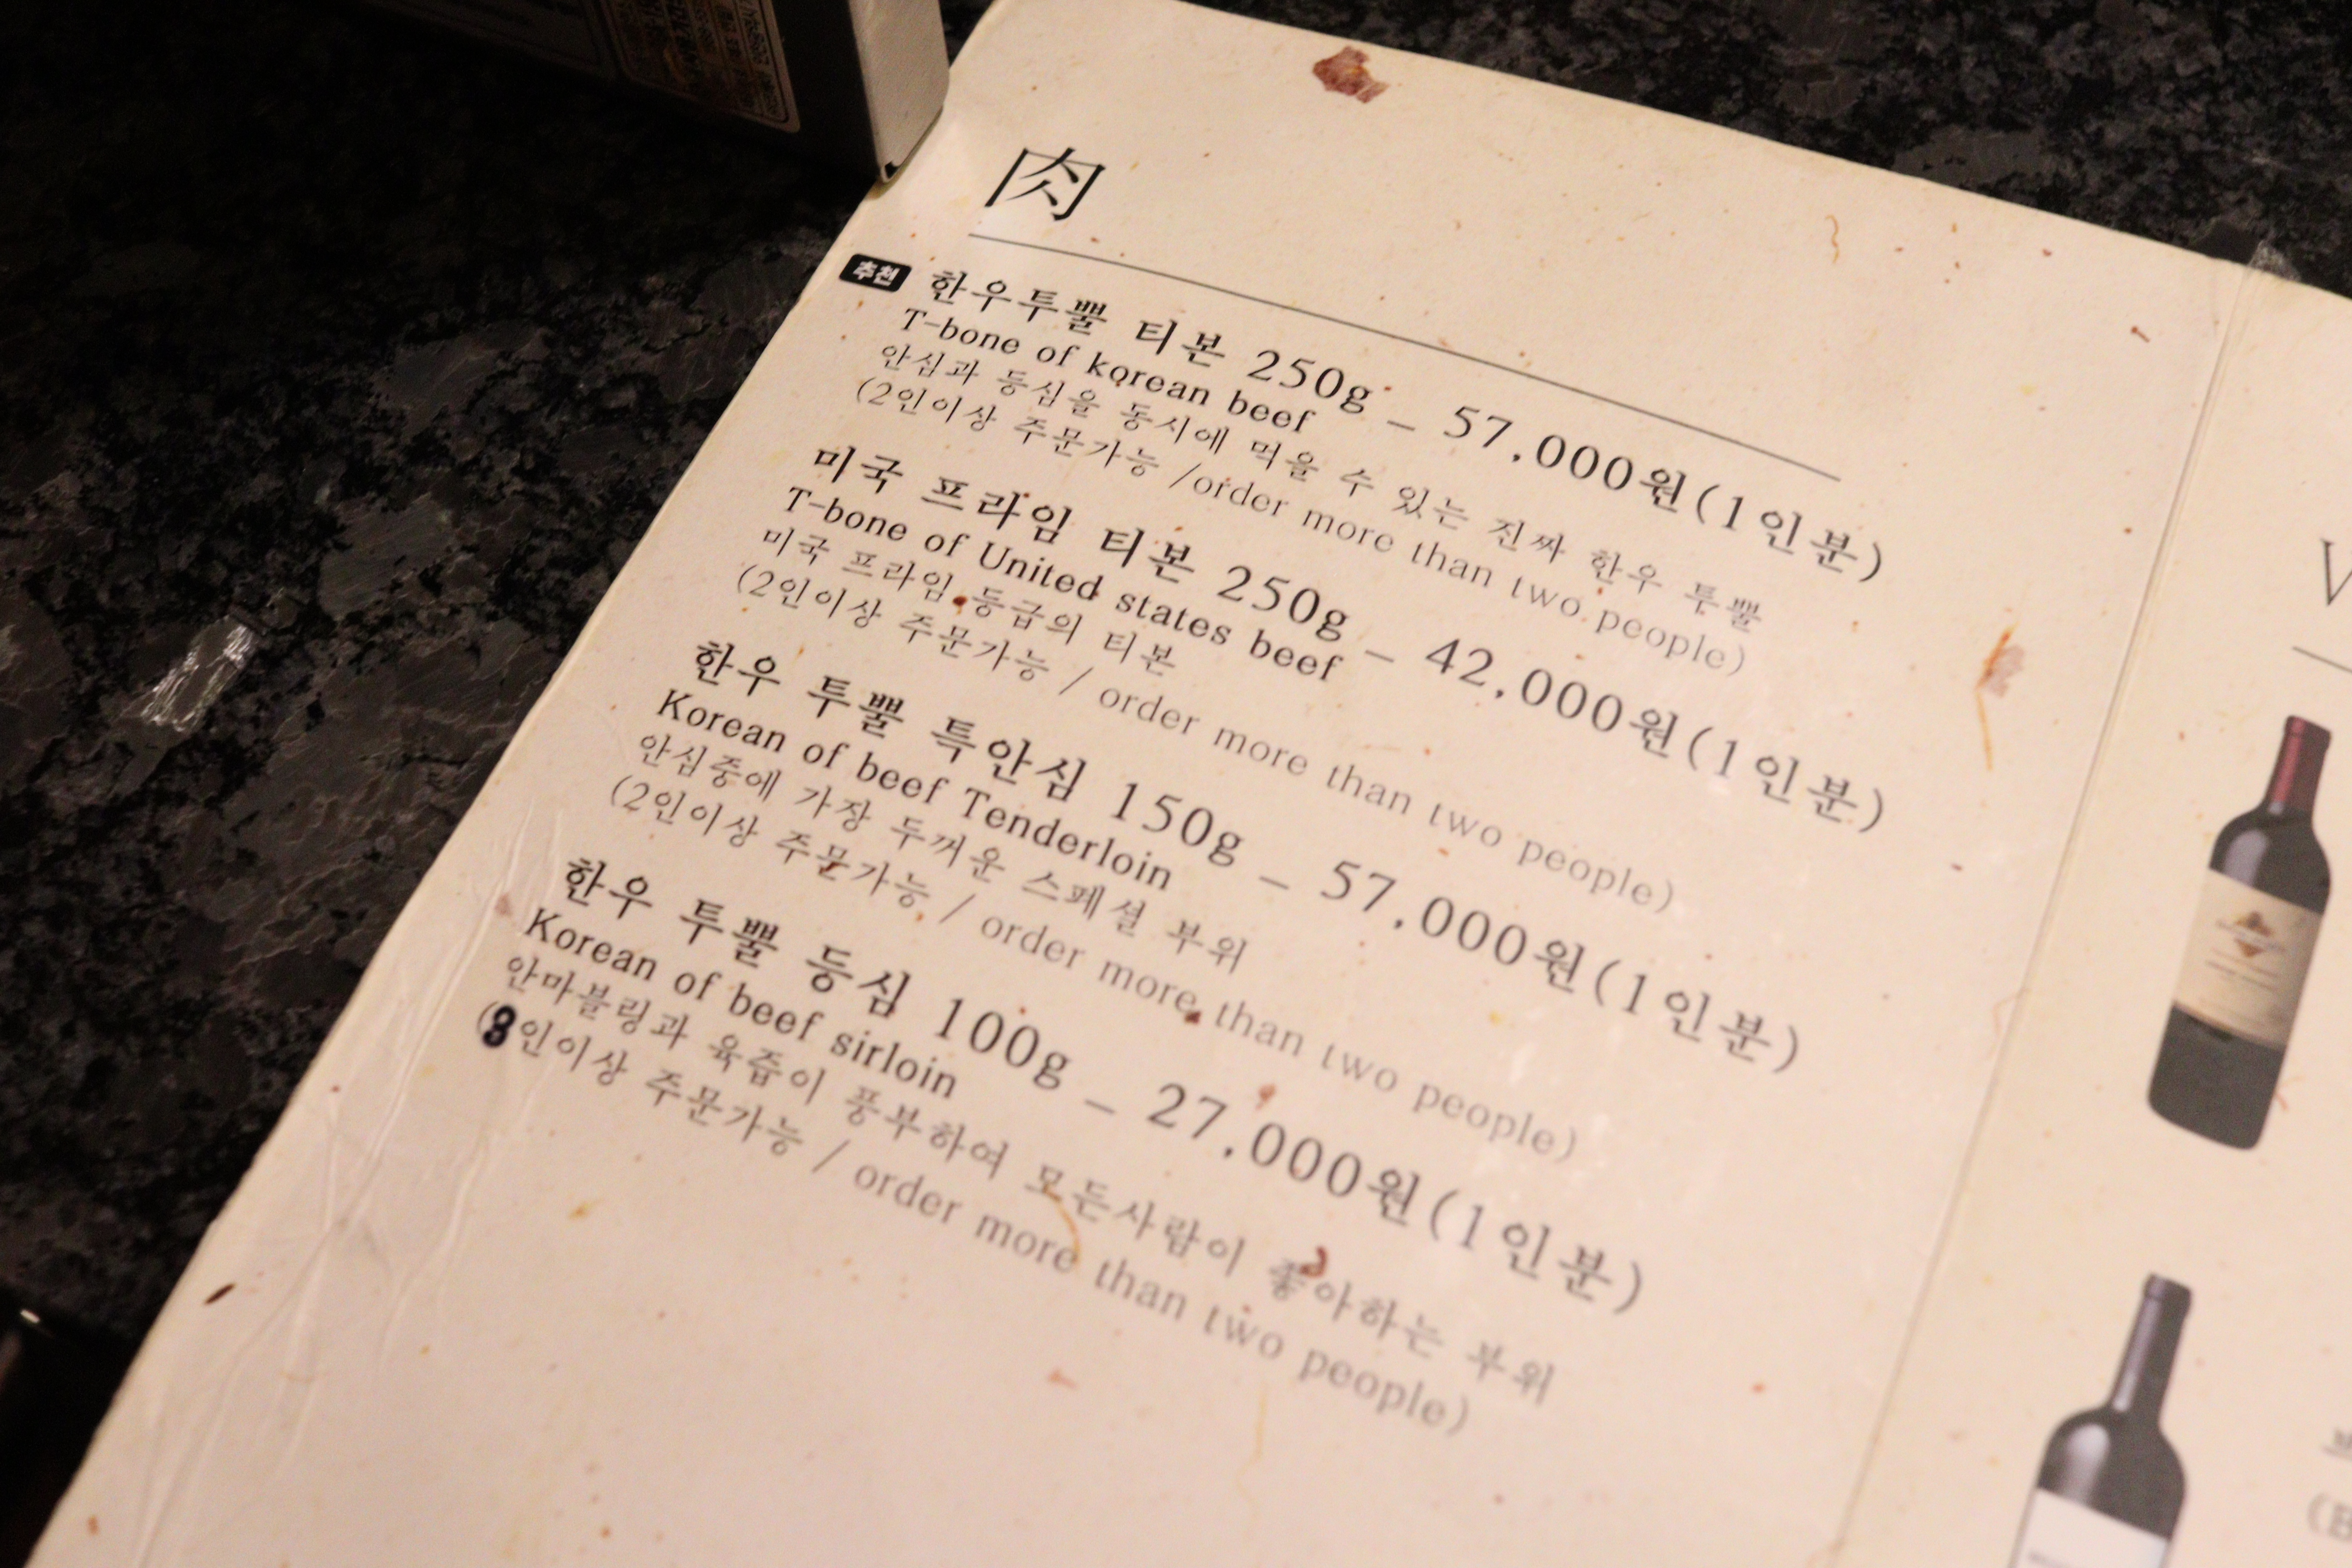 肉
추천
한우투뿔 티본 250g – 57,000원(1인분)
T-bone of korean beef
안심과 등심을 동시에 먹을 수 있는 진짜 한우 투뿔
(2인이상 주문가능 /order more than two people)
미국 프라임 티본 250g – 42,000원(1인분)
T-bone of United states beef
미국 프라임 등급의 티본
(2인이상 주문가능 / order more than two people)
한우 투뿔 특안심 150g – 57,000원(1인분)
Korean of beef Tenderloin
안심중에 가장 두꺼운 스페셜 부위
(2인이상 주문가능 / order more than two people)
한우 투뿔 등심 100g – 27,000원(1인분)
Korean of beef sirloin
안마블링과 육즙이 풍부하여 모든사람이 좋아하는 부위
(3인이상 주문가능 / order more than two people)